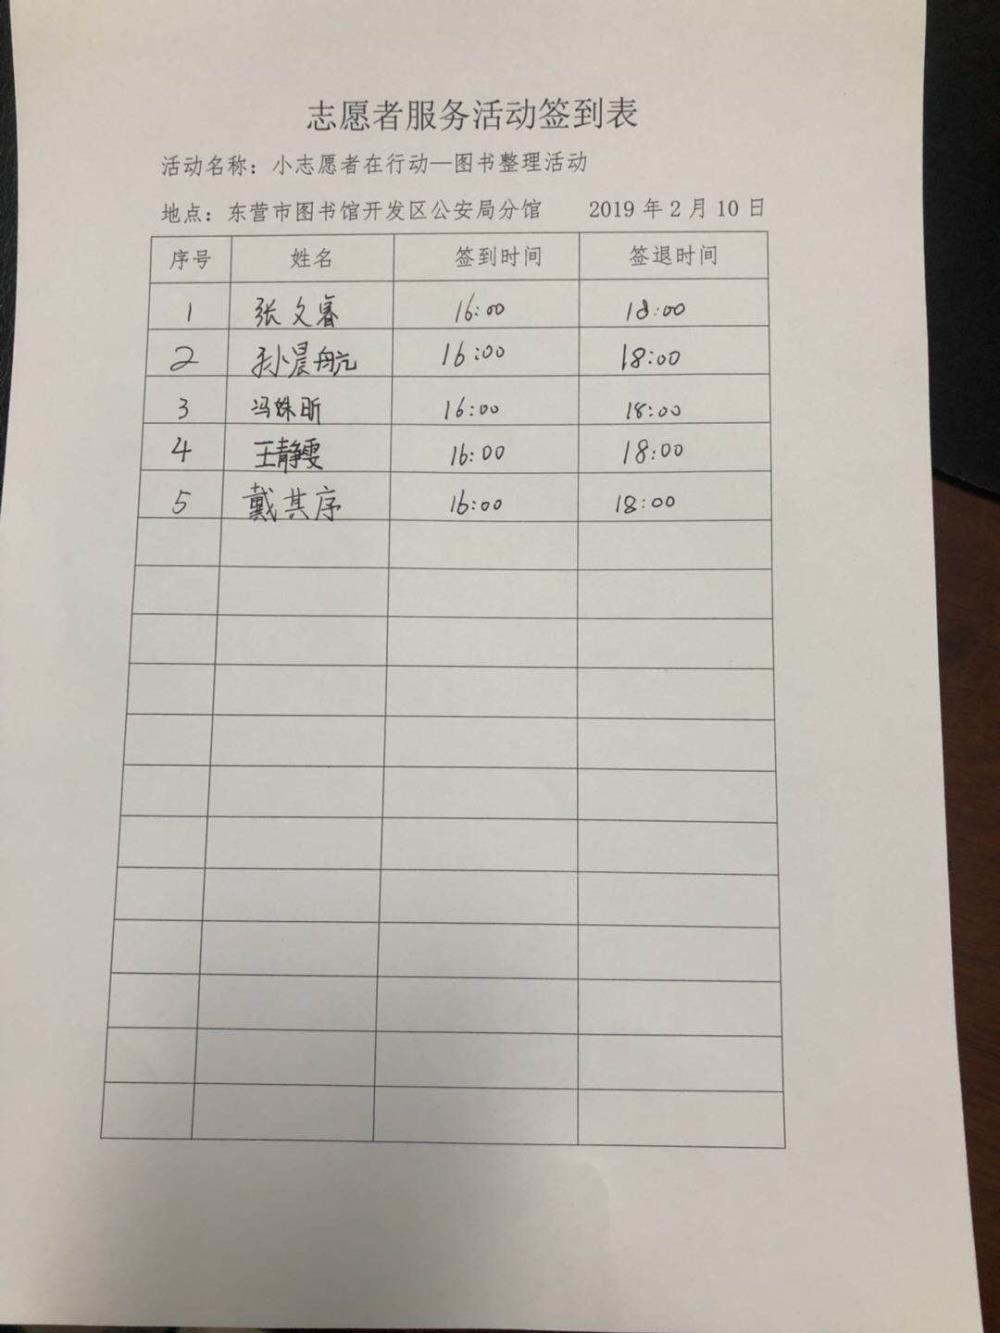 志愿者服务活动签到表
活动名称：小志愿者在行动—图书整理活动
地点：东营市图书馆开发区公安局分馆 2019年2月10日
序号 姓名 签到时间 签退时间
1 张文睿 16:00 18:00
2 孙晨航 16:00 18:00
3 冯姝昕 16:00 18:00
4 王静雯 16:00 18:00
5 戴其序 16:00 18:00